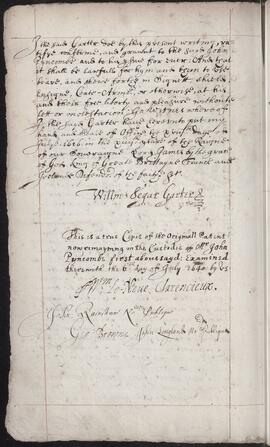 I the said Garter doe by this present writing, ra-
tifye confirme, and graunte to the said John
Pyncombe and to his yssue for ever: And that
it shalbe lawfull for hym and them to use
beare, and shewe forthe in Signett, shield,
Ensigne, Cote-Armor, or otherwise, at his
and their free liberty and pleasure without
lett or molestacion. In witnes whereof
I, the said Garter have hereunto putt my
hand and Seale of Office the day of
July. 1616. in the yeare of the Reigne
of our Soveraigne Lord James by the grace
of God, King of Greate Brittayne Fraunce and
Ireland Defender of the faith &c.
Willm Segar Garter
This is a true Copie of the Originall Patent
now remayning in the Custodie of Mr John
Pyncombe first above sayd: Examined
therewith the 6th day of July 1640. by us
Wm Le Neve Clarenceux.
John Rainshaw Publique
Geo Browne John Longland No: Publique